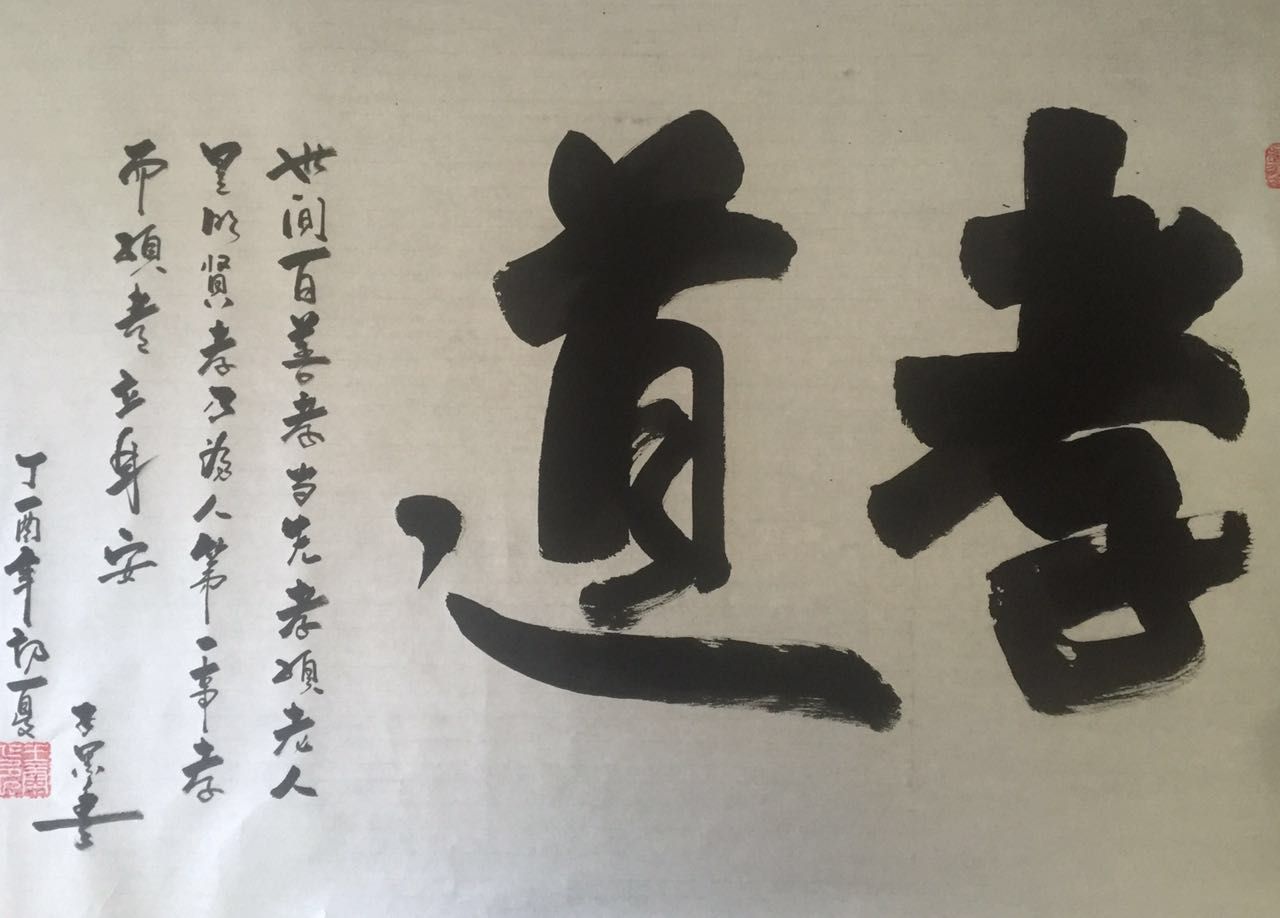 孝道
世间百善孝当先孝顺老人
是明贤孝乃为人第一事孝
而顺者立身安
丁酉年初夏
墨书